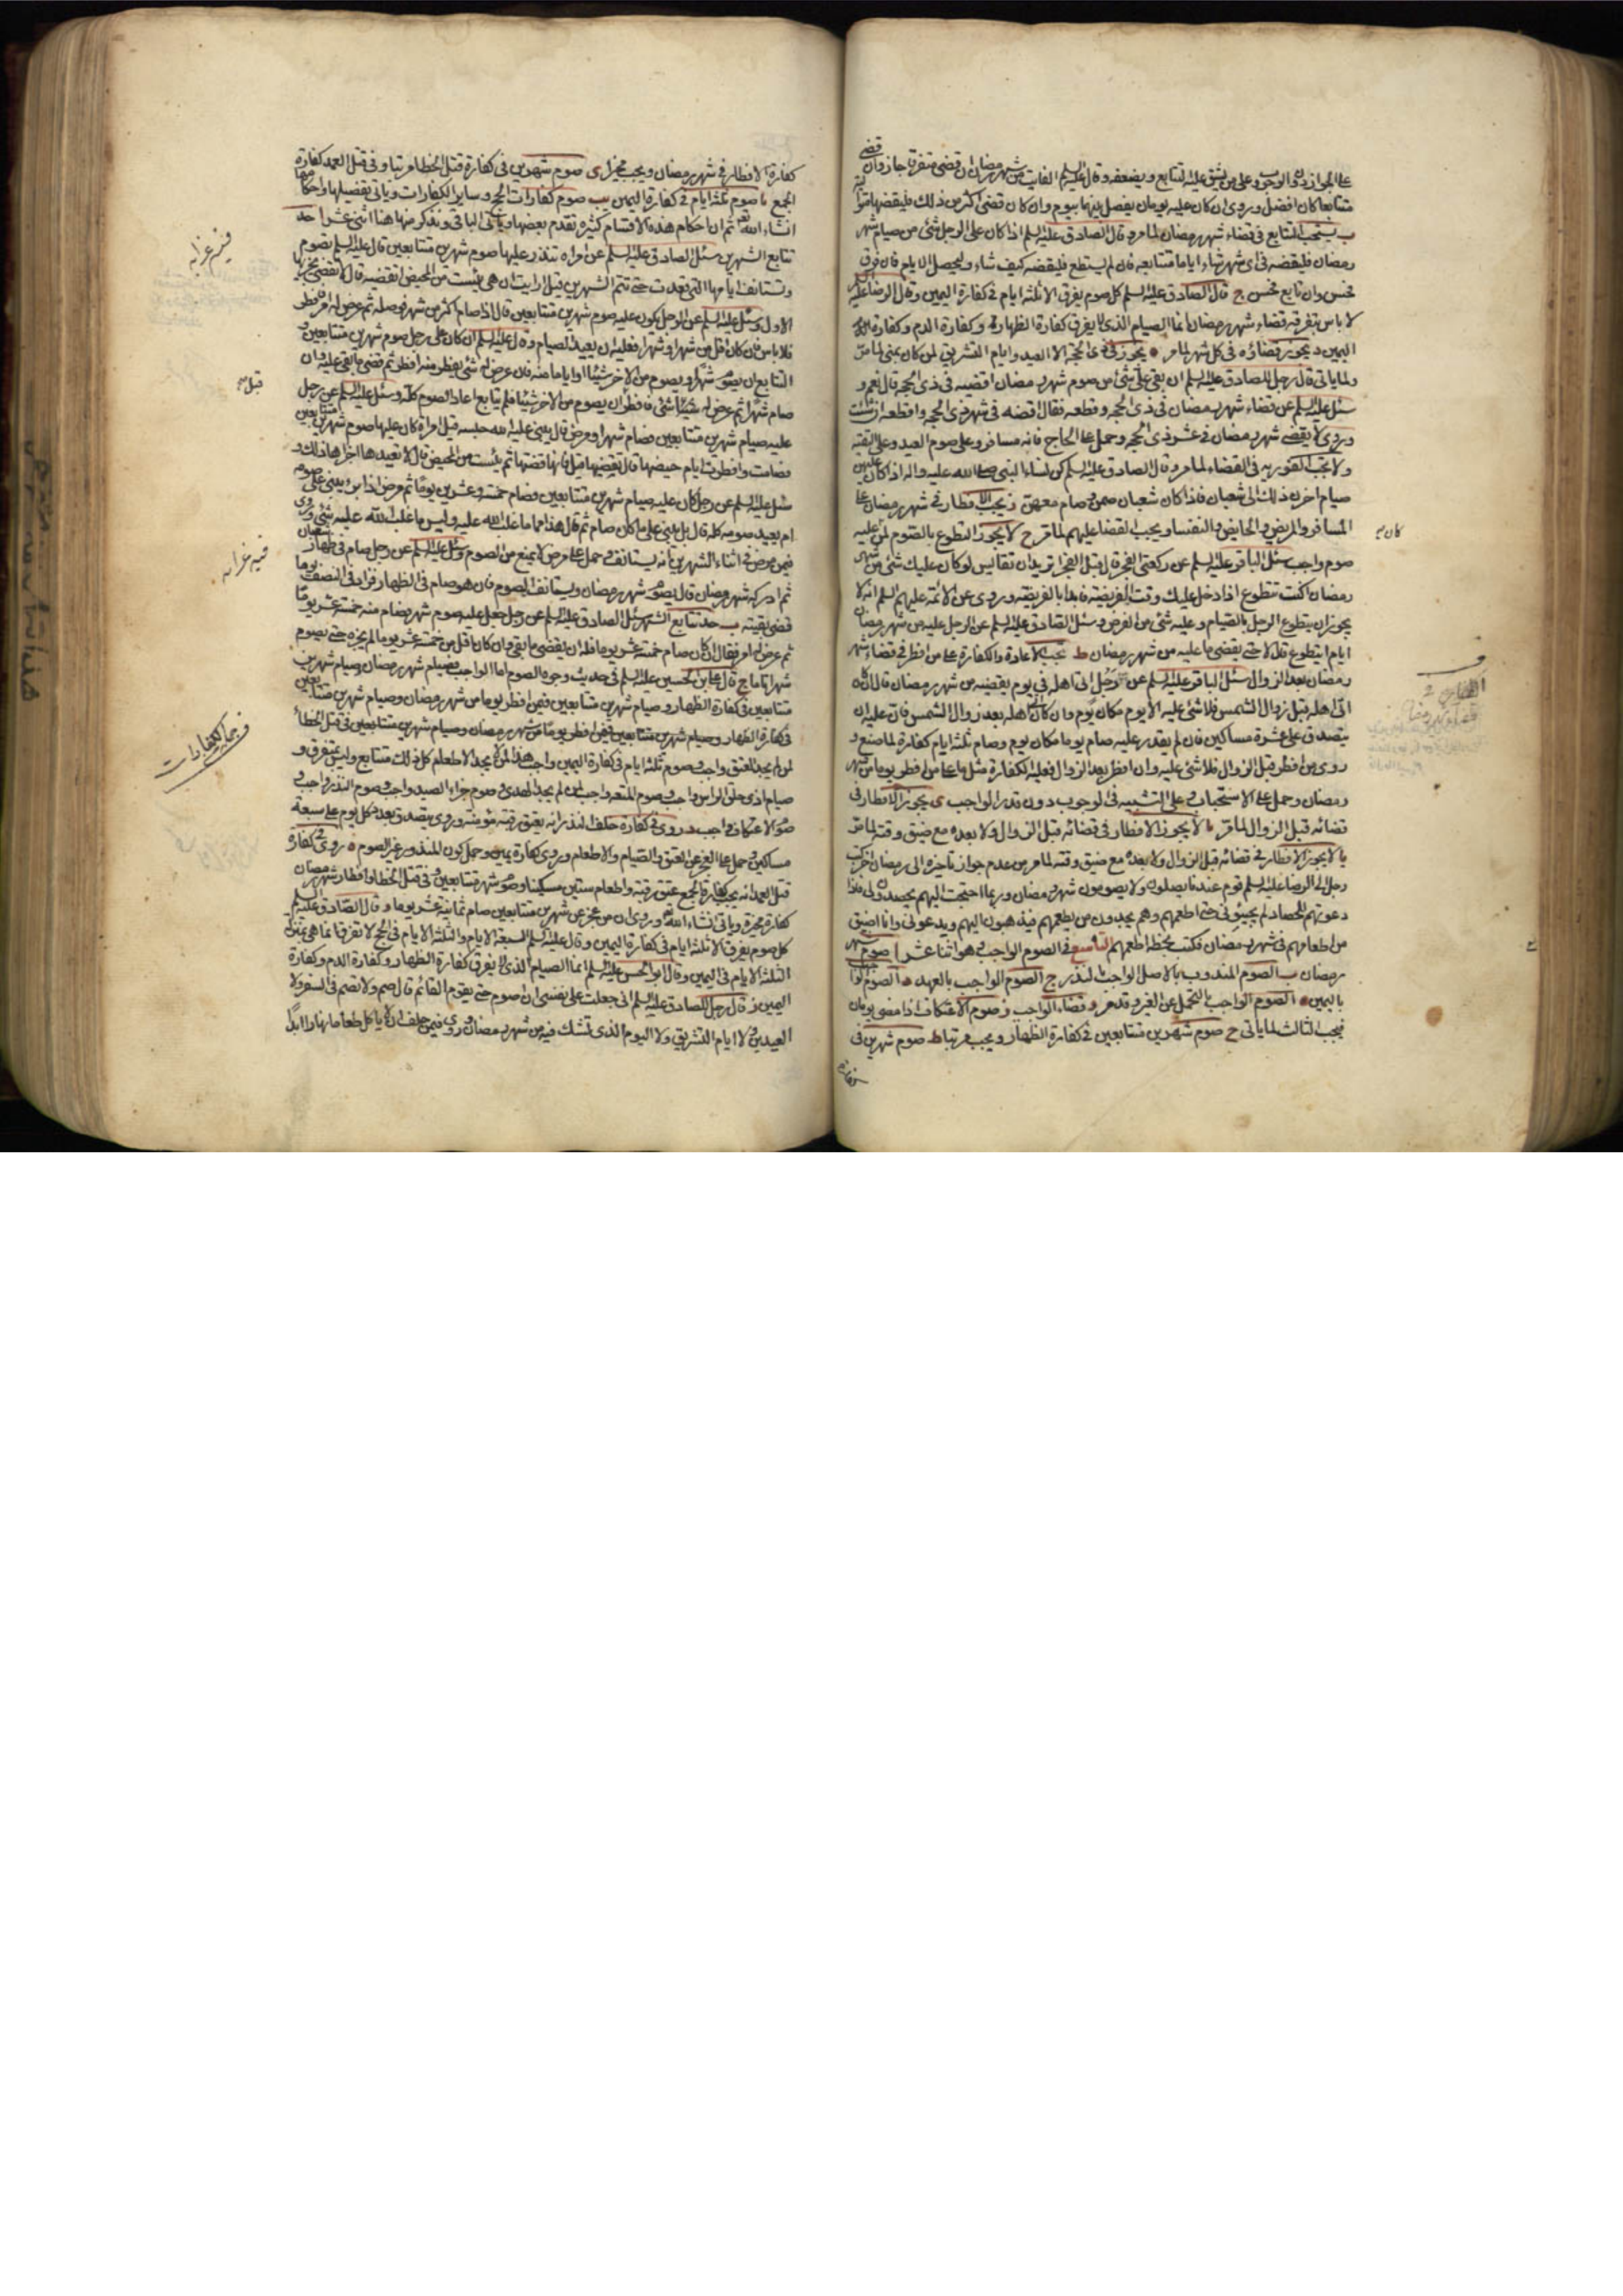 على الجواز دون الوجوب وعلى من يشق عليه التتابع ويضعفه وقال عليه السلم الفايت من شهر رمضان ان قضى متفرقا جاز وان قضى
متتابعا كان افضل وروى ان كان عليه يومان يفصل بينهما بيوم وان كان قضى اكثر من ذلك فليقضها متوالية
ب يستحب التتابع في قضاء شهر رمضان لما مر وقال الصادق عليه السلم اذا كان على الرجل شئ من صيام شهر
رمضان فليقضه في اى شهر شاء اياما متتابعة فان لم يستطع فليقضه كيف شاء وليحص الايام فان فرق
فحسن وان تابع فحسن ج قال الصادق عليه السلم كل صوم يفرق الا ثلثة ايام في كفارة اليمين وقال الرضا عليه السلم
لا باس بتفرقة قضاء شهر رمضان انما الصيام الذى لا يفرق كفارة الظهار وكفارة الدم وكفارة
اليمين د يجوز قضاؤه في كل شهر لما مر ه يجوز في ذى الحجة الا العيد وايام التشريق لمن كان بمنى لما مر
ولما ياتى قال رجل للصادق عليه السلم ان بقى على شئ من صوم شهر رمضان اقضيه في ذى الحجة قال نعم و
سئل عليه السلم عن قضاء شهر رمضان في ذى الحجة وقطعه فقال اقضه في شهر ذى الحجة واقطعه ان شئت
وروى لا يقضى شهر رمضان في عشر ذى الحجة وحمل على الحاج فانه مسافر وعلى صوم العيد وعلى التقية
ولا تجب الفورية في القضاء لما مر وقال الصادق عليه السلم كن نساء النبى صلى الله عليه واله اذا كان عليهن
صيام اخرن ذلك الى شعبان فاذا كان شعبان صمن وصام معهن ز يجب الافطار في شهر رمضان على
المسافر والمريض والحايض والنفسا ويجب القضا عليهم لما مر ح لا يجوز التطوع بالصوم لمن عليه
صوم واجب سئل الباقر عليه السلم عن ركعتى الفجر قال قبل الفجر اتريد ان تقايس لو كان عليك شئ من شهر
رمضان اكنت تتطوع اذا دخل عليك وقت الفريضة فابدا بالفريضة وروى عن الائمة عليهم السلم انه لا
يجوز ان يتطوع الرجل بالصيام وعليه شئ من الفرض وسئل الصادق عليه السلم عن الرجل عليه من شهر رمضان
ايام ايتطوع قال لا حتى يقضى ما عليه من شهر رمضان ط تجب الاعادة والكفارة على من افطر في قضاء شهر
رمضان بعد الزوال سئل الباقر عليه السلم عن رجل اتى اهله في يوم يقضيه من شهر رمضان قال ان كان
اتى اهله قبل زوال الشمس فلا شئ عليه الا يوم مكان يوم وان كان اتى اهله بعد زوال الشمس فان عليه ان
يتصدق على عشرة مساكين فان لم يقدر عليه صام يوما مكان يوم وصام ثلثة ايام كفارة لما صنع و
روى من افطر قبل الزوال فلا شئ عليه وان افطر بعد الزوال فعليه الكفارة مثل ما على من افطر يوما من شهر
رمضان وحمل على الاستحباب وعلى التشبيه في الوجوب دون قدر الواجب ى يجوز الافطار في
قضائه قبل الزوال لما مر يا لا يجوز الافطار في قضائه قبل الزوال ولا بعده مع ضيق وقته لما مر
يا لا يجوز الافطار في قضائه قبل الزوال ولا بعده مع ضيق وقته لما مر من عدم جواز تاخيره الى رمضان اخر كتب
رجل الى الرضا عليه السلم قوم عندنا يصلون ولا يصومون شهر رمضان وربما احتجت اليهم يحصدون لى فاذا
دعوتهم للحصاد لم يجيبونى حتى اطعمهم وهم يجدون من يطعمهم فيذهبون اليهم ويدعونى وانا اضيق
من اطعامهم في شهر رمضان فكتب بخطه اطعمهم التاسع في الصوم الواجب وهو اثنا عشر ا صوم شهر
رمضان ب الصوم المندوب بالاصل الواجب بالنذر ج الصوم الواجب بالعهد د الصوم الواجب
باليمين ه الصوم الواجب بالتحمل عن الغير وقد مر و قضاء الواجب ز صوم الاعتكاف اذا مضى يومان
فيجب الثالث لما ياتى ح صوم شهرين متتابعين في كفارة الظهار ويجب مرتبا ط صوم شهرين في
كفارة
كان
كفارة الافطار في شهر رمضان ويجب مخيرا ى صوم شهرين في كفارة قتل الخطا مرتبا وفى قتل العمد كفارة
الجمع يا صوم ثلثة ايام في كفارة اليمين يب صوم كفارات الحج وساير الكفارات وياتى تفصيلها واحكامها
انشاء الله تعالى ثم ان احكام هذه الاقسام كثيرة تقدم بعضها وياتى الباقى ونذكر منها هنا اثنى عشر ا حد
تتابع الشهرين سئل الصادق عليه السلم عن امراه تنذر عليها صوم شهرين متتابعين قال عليه السلم تصوم
وتستانف ايامها التى قعدت حتى تتم الشهرين قيل ارايت ان هى يئست من الحيض اتقضيه قال لا تقضى يجزيها
الاول وسئل عليه السلم عن الرجل يكون عليه صوم شهرين متتابعين قال اذا صام اكثر من شهر فوصله ثم عرض له امر فافطر
فلا باس فان كان اقل من شهر او شهرا فعليه ان يعيد الصيام وقال عليه السلم ان كان على رجل صوم شهرين متتابعين و
التتابع ان يصوم شهرا ويصوم من الاخر شيئا او اياما منه فان عرض له شئ يفطر منه افطر ثم قضى ما بقى عليه وان
صام شهرا ثم عرض له شئ فافطر قبل ان يصوم من الاخر شيئا فلم يتابع اعاد الصوم كله وسئل عليه السلم عن رجل
عليه صيام شهرين متتابعين فصام شهرا ومرض قال يبنى عليه الله حبسه قيل امراة كان عليها صوم شهرين متتابعين
فصامت وافطرت ايام حيضها قال تقضيها قيل فانها قضتها ثم يئست من الحيض قال لا تعيدها اجزاها ذلك و
سئل عليه السلم عن رجل كان عليه صيام شهرين متتابعين فصام خمسة وعشرين يوما ثم مرض اذا برء يبنى على صومه
ام يعيد صومه كله قال بل يبنى على ما كان صام ثم قال هذا مما غلب الله عليه وليس ما غلب الله عليه شئ وروى
فيمن مرض في اثناء الشهرين انه يستانف وحمل على مرض لا يمنع من الصوم وسئل عليه السلم عن رجل صام في ظهار شعبان
ثم ادركه شهر رمضان قال يصوم شهر رمضان ويستانف الصوم فان هو صام في الظهار فزاد في النصف يوما
قضى بقيته ب حد تتابع الشهر سئل الصادق عليه السلم عن رجل جعل عليه صوم شهر فصام منه خمسة عشر يوما
ثم عرض له امر فقال ان كان صام خمسة عشر يوما فله ان يقضى ما بقى وان كان اقل من خمسة عشر يوما لم يجزه حتى يصوم
شهرا تاما ج قال على بن الحسين عليه السلم في حديث وجوه الصوم اما الواجب فصيام شهر رمضان وصيام شهرين
متتابعين في كفارة الظهار وصيام شهرين متتابعين فيمن افطر يوما من شهر رمضان وصيام شهرين متتابعين
في كفارة الظهار وصيام شهرين متتابعين فيمن افطر يوما من شهر رمضان وصيام شهرين متتابعين في قتل الخطا
لمن لم يجد العتق واجب وصوم ثلثة ايام في كفارة اليمين واجب هذا لمن لا يجد الاطعام كل ذلك متتابع وليس بمتفرق و
صيام اذى حلق الراس واجب وصوم المتعه واجب لمن لم يجد الهدى وصوم جزاء الصيد واجب وصوم النذر واجب و
صوم الاعتكاف واجب د روى في كفارة خلف النذر انه يعتق رقبة مؤمنة وروى يتصدق بعد كل يوم على سبعة
مساكين وحمل على العجز عن العتق والصيام والاطعام وروى كفارة يمين وحمل كون المنذور غير الصوم ه روى في كفارة
قتل العمد انه يجب كفارة الجمع عتق رقبة واطعام ستين مسكينا وصوم شهرين متتابعين وفى قتل الخطا وافطار شهر رمضان
كفارة مخيرة وياتى انشاء الله وروى ان من عجز عن شهرين متتابعين صام ثمانية عشر يوما و قال الصادق عليه السلم
كل صوم يفرق الا ثلثة ايام في كفارة اليمين وقال عليه السلم السبعة الايام والثلثة الايام في الحج لا تفرق انما هى بمنزلة
الثلثة الايام في اليمين وقال ابو الحسن عليه السلم انما الصيام الذى لا يفرق كفارة الظهار وكفارة الدم وكفارة
اليمين ز قال رجل للصادق عليه السلم انى جعلت على نفسى ان اصوم حتى يقوم القائم قال صم ولا تصم في السفر ولا
العيدين ولا ايام التشريق ولا اليوم الذى تشك فيه من شهر رمضان وروى فيمن حلف ان لا ياكل طعاما بنهار ابدا
فيه غرابه
قبل
فيه غرابه